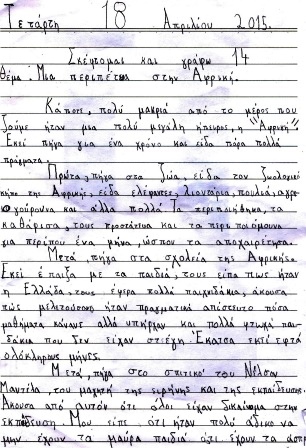 Τετάρτη 18 Απριλίου 2015.
Σκέφτομαι και γράφω 14
Θέμα: Μια περιπέτεια στην Αφρική.
Κάποτε, πολύ μακριά από το μέρος που
ζούμε ήταν μια πολύ μεγάλη ήπειρος, η "Αφρική"
Εκεί πήγα για ένα χρόνο και είδα πάρα πολλά
πράγματα.
Πρώτα, πήγα στα ζώα, είδα τον ζωολογικό
κήπο της Αφρικής, είδα ελέφαντες, λιοντάρια, πουλιά, αγριο
γούρουνα και άλλα πολλά Τα περιποιήθηκα, τα
καθάρισα, τους προστάτευα και τα περιποιόμουνα
για περίπου ένα μήνα, ώσπου τα αποχαιρέτησα.
Μετά, πήγα στα σχολεία της Αφρικής.
Εκεί έπαιξα με τα παιδιά, τους είπα πως ήταν
η Ελλάδα, τους έφερα πολλά παιχνιδάκια, άκουσα
πώς μελετούσαν ήταν πραγματικά απίστευτο πόσα
μαθήματα κάνανε αλλά υπήρχαν και πολλά φτωχά παι-
δάκια που δεν είχαν στέγη. Έκατσα εκεί εφτά
ολόκληρους μήνες.
Μετά, πήγα στο σπιτικό του Νέλσον
Μαντέλα, του μαχητή της ειρήνης και της εκπαίδευσης.
Άκουσα από αυτόν ότι όλοι είχαν δικαίωμα στην
εκπαίδευση Μου είπε ότι ήταν πολύ άδικο να
μην έχουν τα μαύρα παιδιά ότι έχουν τα άσπ